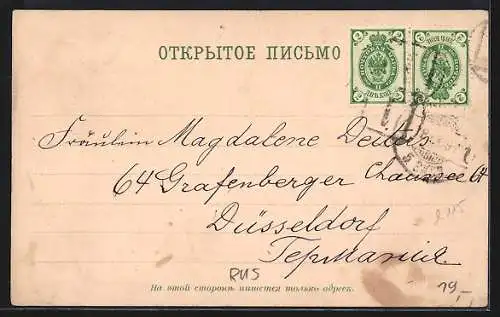 ОТКРЫТОЕ ПИСЬМО
Fräulein Magdalene
64 Grafenberger Chaussee 64
Düsseldorf
Германія
RUS
На этой сторонѣ пишется только адресъ.
19,-